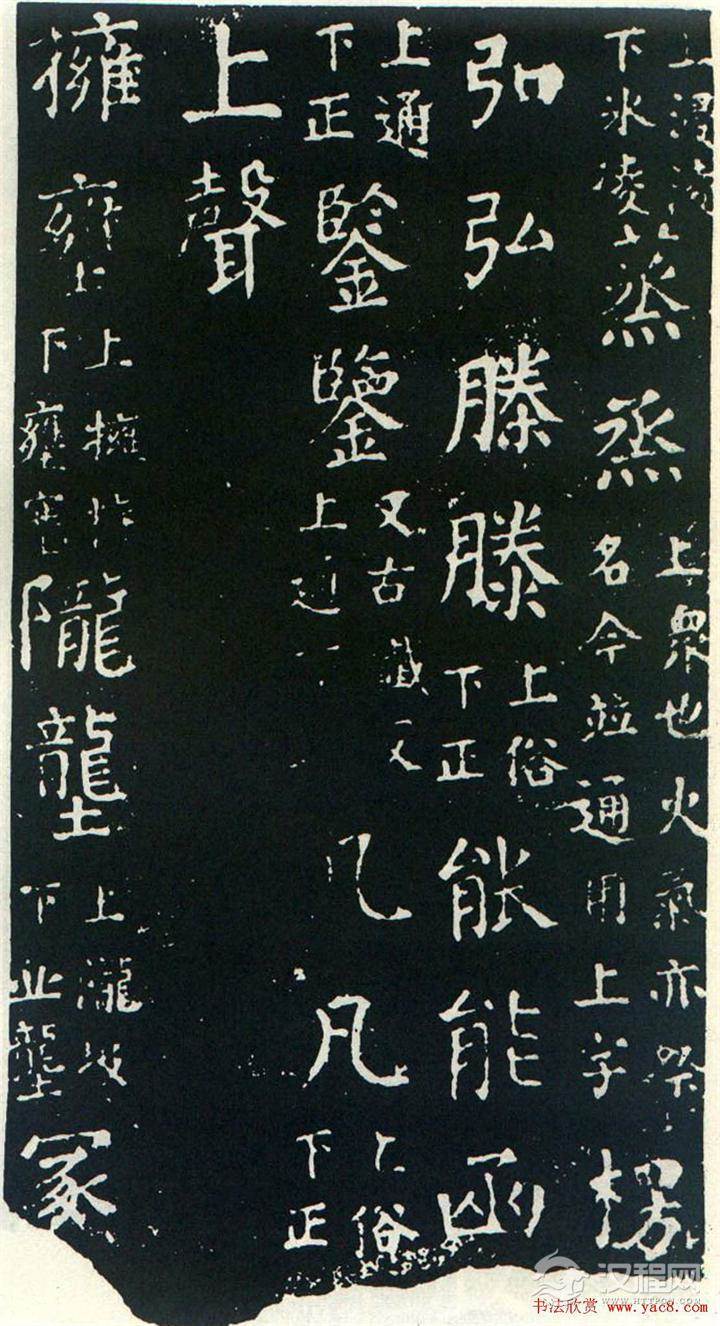 下氷凌蒸烝上衆也火氣亦祭名今並通用上字楞
弘弘滕滕上俗下正能能函
上通下正鑒鑒又古反上通凡凡上俗下正
上聲
擁壅上擁下壅塞隴壟上隴坂下丘壟冢
书法欣赏 www.yac8.com
汉程网
WWW.HTTPCN.COM